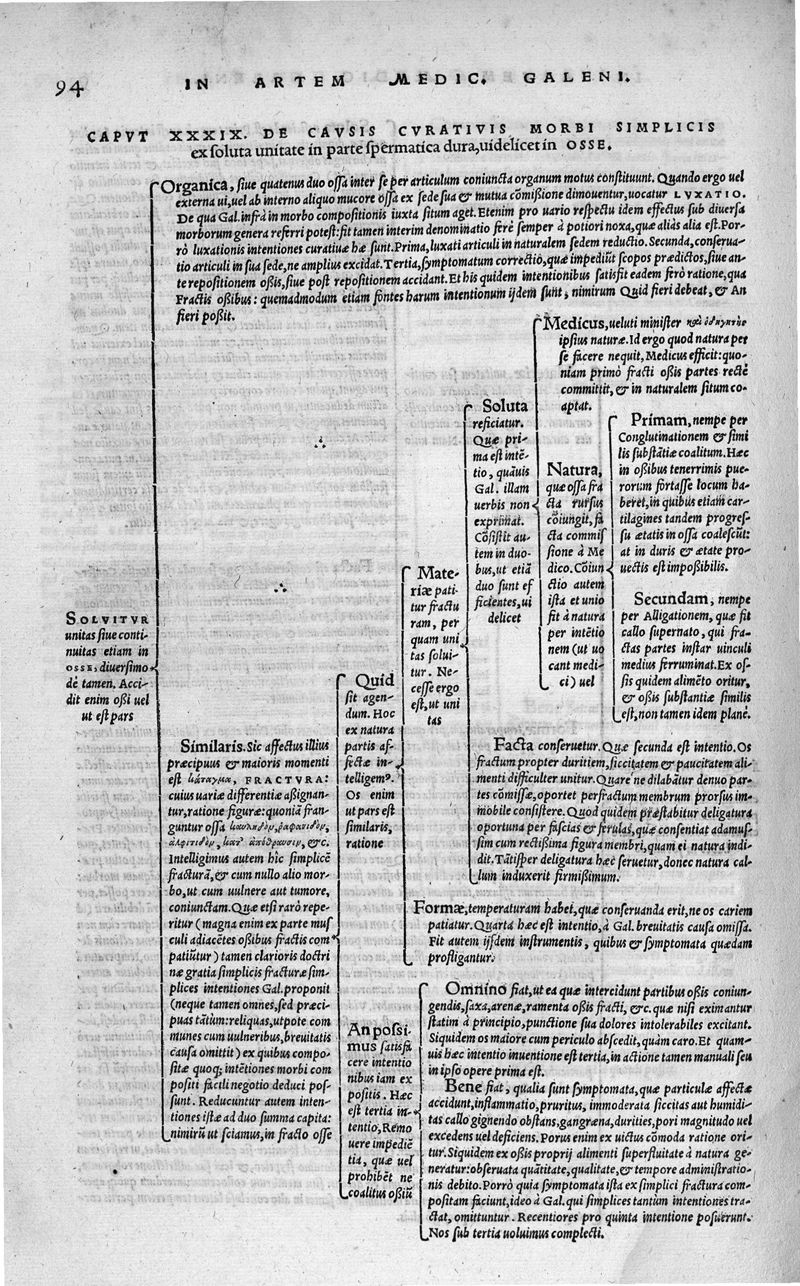 94
IN ARTEM MEDIC. GALENI.
CAPVT XXXIX. DE CAVSIS CVRATIVIS MORBI SIMPLICIS
ex soluta unitate in parte spermatica dura, uidelicet in OSSE.
SOLVITVR
unitas siue conti-
nuitas etiam in
OSSE, diuersimo
dè tamen. Acci-
dit enim oßi uel
ut est pars
Organica, siue quatenus duo oßa inter se per articulum coniuncta organum motus constituunt. Quando ergo uel
externa ui, uel ab interno aliquo mucore oßa ex sede sua & mutua cõmißione dimouentur, uocatur LVXATIO.
De qua Gal. infrà in morbo compositionis iuxta situm aget. Etenim pro uario respectu idem effectus sub diuersa
morborum genera referri potest: fit tamen interim denominatio ferè semper à potiori noxa, quæ aliàs alia est. Por-
rò luxationis intentiones curatiuæ hæ sunt. Prima, luxati articuli in naturalem sedem reductio. Secunda, conserua-
tio articuli in sua sede, ne amplius excidat. Tertia, symptomatum correctio, quæ impediũt scopos prædictos, siue an-
te repositionem oßis, siue post repositionem accidant. Et his quidem intentionibus satisfit eadem ferò ratione, qua
Fractis oßibus: quemadmodum etiam fontes harum intentionum ijdem sunt, nimirum Quid fieri debeat, & An
fieri poßit.
Similaris. Sic affectus illius
præcipuus & maioris momenti
est κάταγμα, FRACTVRA:
cuius uariæ differentiæ aßignan-
tur, ratione figuræ: quoniã fran-
guntur ossa
&c.
Intelligimus autem hîc simplicẽ
fracturã, & cum nullo alio mor-
bo, ut cum uulnere aut tumore,
coniunctam. Quæ etsi rarò repe-
ritur (magna enim ex parte mus
culi adiacẽtes oßibus fractis com
patiũtur) tamen clarioris doctri
næ gratia simplicis fracturæ sim-
plices intentiones Gal. proponit
(neque tamen omnes, sed præci-
puas tãtùm: reliquas, ut pote com
munes cum uulneribus, breuitatis
causa omittit) ex quibus compo-
sitæ quoq; intẽtiones morbi com
positi facili negotio deduci pos-
sunt. Reducuntur autem inten-
tiones istæ ad duo summa capita:
nimirũ ut sciamus, in fracto osse
Quid
sit agen-
dum. Hoc
ex natura
partis af-
fectæ in-
telligemꝰ.
Os enim
ut pars est
similaris,
ratione
Mate-
riæ pati
tur fractu
ram, per
quam uni
tas solui-
tur. Ne-
cesse ergo
est, ut uni
tas
Soluta
reficiatur.
Quæ pri-
ma est intẽ-
tio, quãuis
Gal. illam
uerbis non
exprimat.
Cõsistit au-
tem in duo-
bus, ut etiã
duo sunt ef
ficientes, ui
delicet
Medicus, ueluti minister
ipsius naturæ. Id ergo quod natura per
se facere nequit, Medicus efficit: quo-
niam primò fracti oßis partes rectè
committit, & in naturalem situm co-
aptat.
Natura,
quæ ossa fra
cta rursus
cõiungit, fa
cta commis
sione à Me
dico. Cõiun
ctio autem
ista et unio
fit à natura
per intẽtio
nem (ut uo
cant medi-
ci) uel
Primam, nempe per
Conglutinationem & simi
lis substãtiæ coalitum. Hæc
in oßibus tenerrimis pue-
rorum fortasse locum ha-
beret, in quibus etiam car-
tilagines tandem progres-
su ætatis in ossa coalescũt:
at in duris & ætate pro-
uectis est impoßibilis.
Secundam, nempe
per Alligationem, quæ fit
callo supernato, qui fra-
ctas partes instar uinculi
medius ferruminat. Ex os-
sis quidem alimẽto oritur,
& oßis substantiæ similis
est, non tamen idem planè.
Facta conseruetur. Quæ secunda est intentio. Os
fractum propter duritiem, siccitatem & paucitatem ali-
menti difficulter unitur. Quare ne dilabãtur denuo par-
tes cõmissæ, oportet perfractum membrum prorsus im-
mobile consistere. Quod quidem præstabitur deligatura
oportuna per fascias & ferulas, quæ consentiat adamus-
sim cum rectißima figura membri, quam ei natura indi-
dit. Tãtisper deligatura hæc seruetur, donec natura cal-
lum induxerit firmißimum.
Formæ, temperaturam habet, quæ conseruanda erit, ne os cariem
patiatur. Quarta hæc est intentio, à Gal. breuitatis causa omissa.
Fit autem ijsdem instrumentis, quibus & symptomata quædam
profligantur.
An possi-
mus satisfa
cere intentio
nibus iam ex
positis. Hæc
est tertia in-
tentio, Remo
uere impedië
tia, quæ uel
prohibẽt ne
coalitus oßiũ
Omnino fiat, ut ea quæ intercidunt partibus oßis coniun-
gendis, saxa, arenæ, ramenta oßis fracti, &c. quæ nisi eximantur
statim à principio, punctione sua dolores intolerabiles excitant.
Siquidem os maiore cum periculo abscedit, quàm caro. Et quam-
uis hæc intentio inuentione est tertia, in actione tamen manuali seu
in ipso opere prima est.
Bene fiat, qualia sunt symptomata, quæ particulæ affectæ
accidunt, inflammatio, pruritus, immoderata siccitas aut humidi-
tas callo gignendo obstans, gangræna, durities, pori magnitudo uel
excedens uel deficiens. Porus enim ex uictus cõmoda ratione ori-
tur. Siquidem ex oßis proprij alimenti superfluitate à natura ge-
neratur: obseruata quãtitate, qualitate, & tempore administratio-
nis debito. Porrò quia symptomata ista ex simplici fractura com-
positam faciunt, ideo à Gal. qui simplices tantùm intentiones tra-
ctat, omittuntur. Recentiores pro quinta intentione posuerunt.
Nos sub tertia uoluimus complecti.